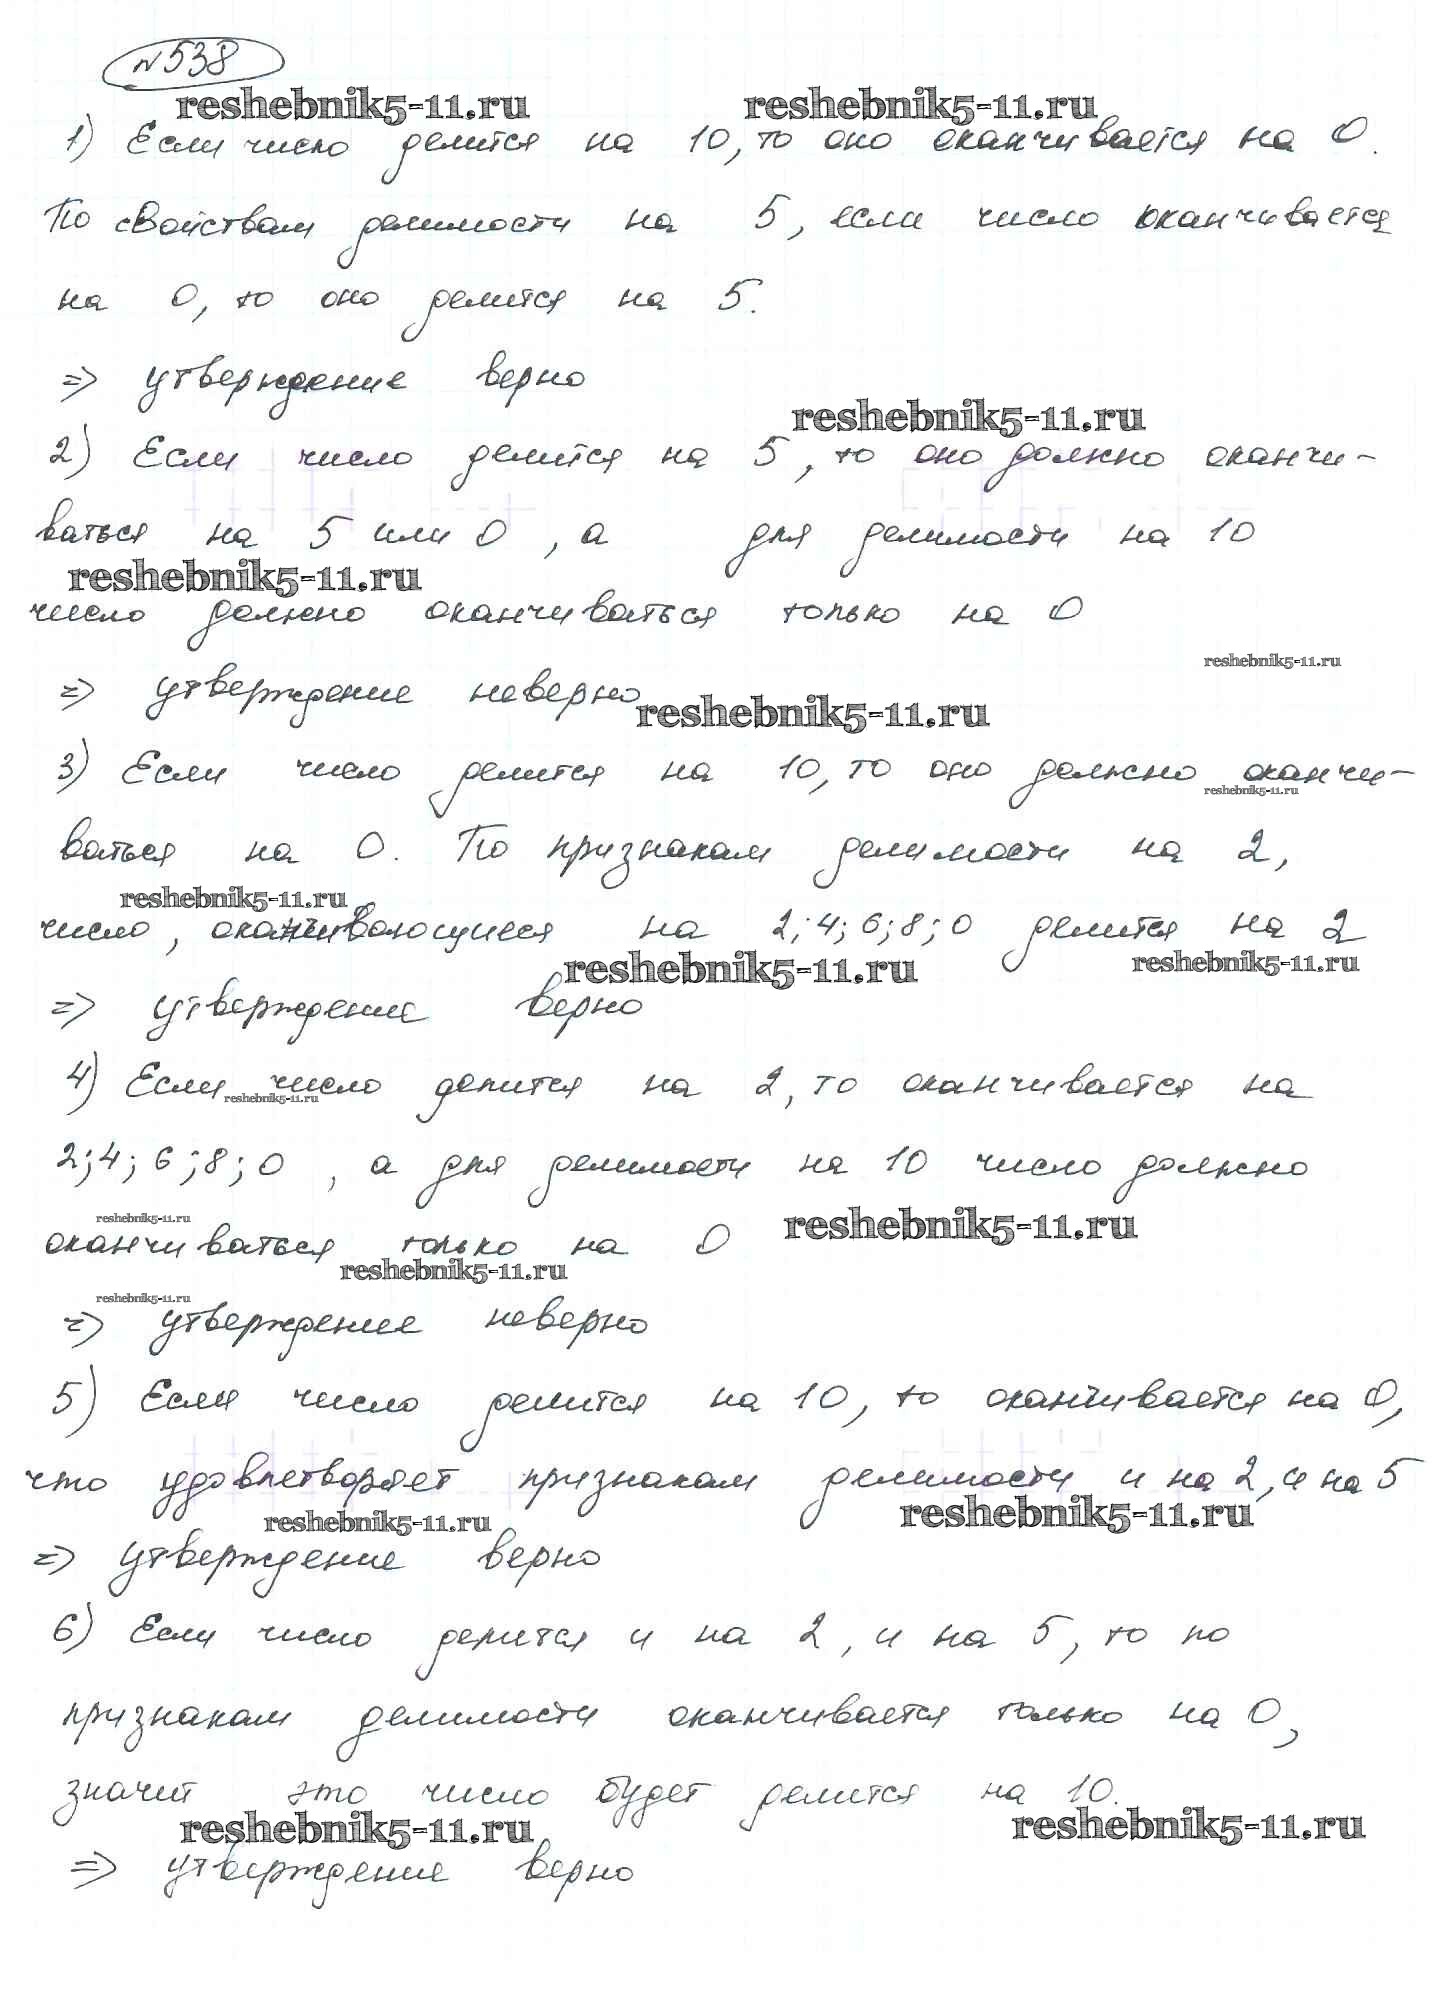 №538
reshebnik5-11.ru reshebnik5-11.ru
1) Если число делится на 10, то оно оканчивается на 0.
По свойствам делимости на 5, если число оканчивается
на 0, то оно делится на 5.
=> утверждение верно
reshebnik5-11.ru
2) Если число делится на 5, то оно должно оканчи-
ваться на 5 или 0, а для делимости на 10
reshebnik5-11.ru
число должно оканчиваться только на 0
reshebnik5-11.ru
=> утверждение неверно
reshebnik5-11.ru
3) Если число делится на 10, то оно должно оканчи-
reshebnik5-11.ru
ваться на 0. По признакам делимости на 2,
reshebnik5-11.ru
число, оканчивающиеся на 2; 4; 6; 8; 0 делится на 2
reshebnik5-11.ru reshebnik5-11.ru
=> утверждение верно
4) Если число делится на 2, то оканчивается на
reshebnik5-11.ru
2; 4; 6; 8; 0, а для делимости на 10 число должно
reshebnik5-11.ru reshebnik5-11.ru
оканчиваться только на 0
reshebnik5-11.ru
reshebnik5-11.ru
=> утверждение неверно
5) Если число делится на 10, то оканчивается на 0,
что удовлетворяет признакам делимости и на 2, и на 5
reshebnik5-11.ru reshebnik5-11.ru
=> утверждение верно
6) Если число делится и на 2, и на 5, то по
признакам делимости оканчивается только на 0,
значит это число будет делится на 10.
reshebnik5-11.ru reshebnik5-11.ru
=> утверждение верно